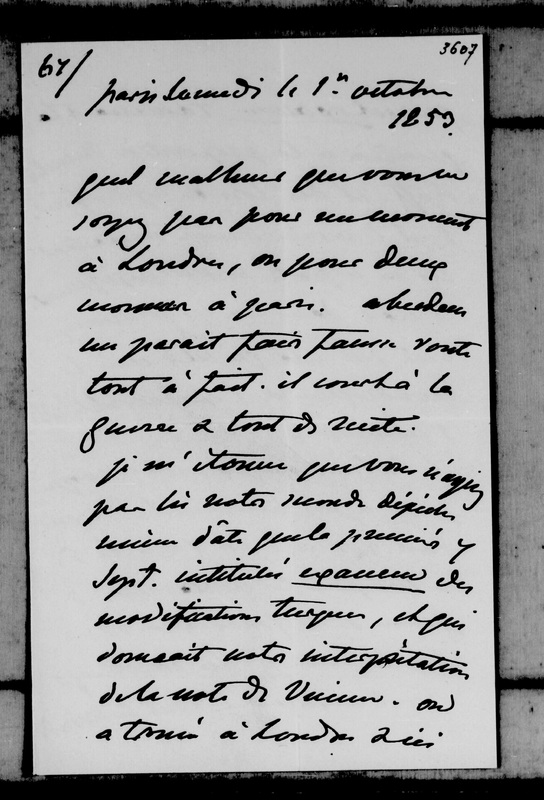 67/
3607
paris Samedi le 1er octobre
1853.
quel malheur que vous ne
soyez pas pour un moment
à Londres, ou pour deux
momens à paris. aberdeen
me parait faire fausse route
tout à fait. il court à la
guerre & tout de suite.
je m'étonne que vous n'ayiez
pas lu notre seconde dépêche
même dâte que la première 7
Sept. intitulée examen des
modifications turques, et qui
donnait notre interprétation
de la note de Vienne. on
a trouvé à Londres & ici